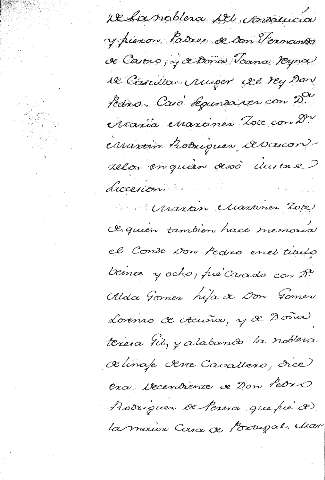 de la nobleza del Andalucia
y fueron Padres de Don Fernando
de Castro, y de Doña Juana Reyna
de Castilla Muger del Rey Don
Pedro. Casó segunda vez con D.ª
Maria Martinez Zote con D.n
Martin Rodriguez de Vascon
zelos en quien dexó ilustre
succesion.
Martin Martinez Zote
de quien tambien hace memoria
el Conde Don Pedro en el titulo
veinte y ocho, fué casado con D.ª
Alda Gomez hija de Don Gomez
Lorenzo de Acuña, y de Doña
teresa Gil, y alabando la nobleza
de linaje deste Cavallero, dice
era decendiente de Don Pedro
Rodriguez de Pereira que fué de
la maior Casa de Portugal. Mar